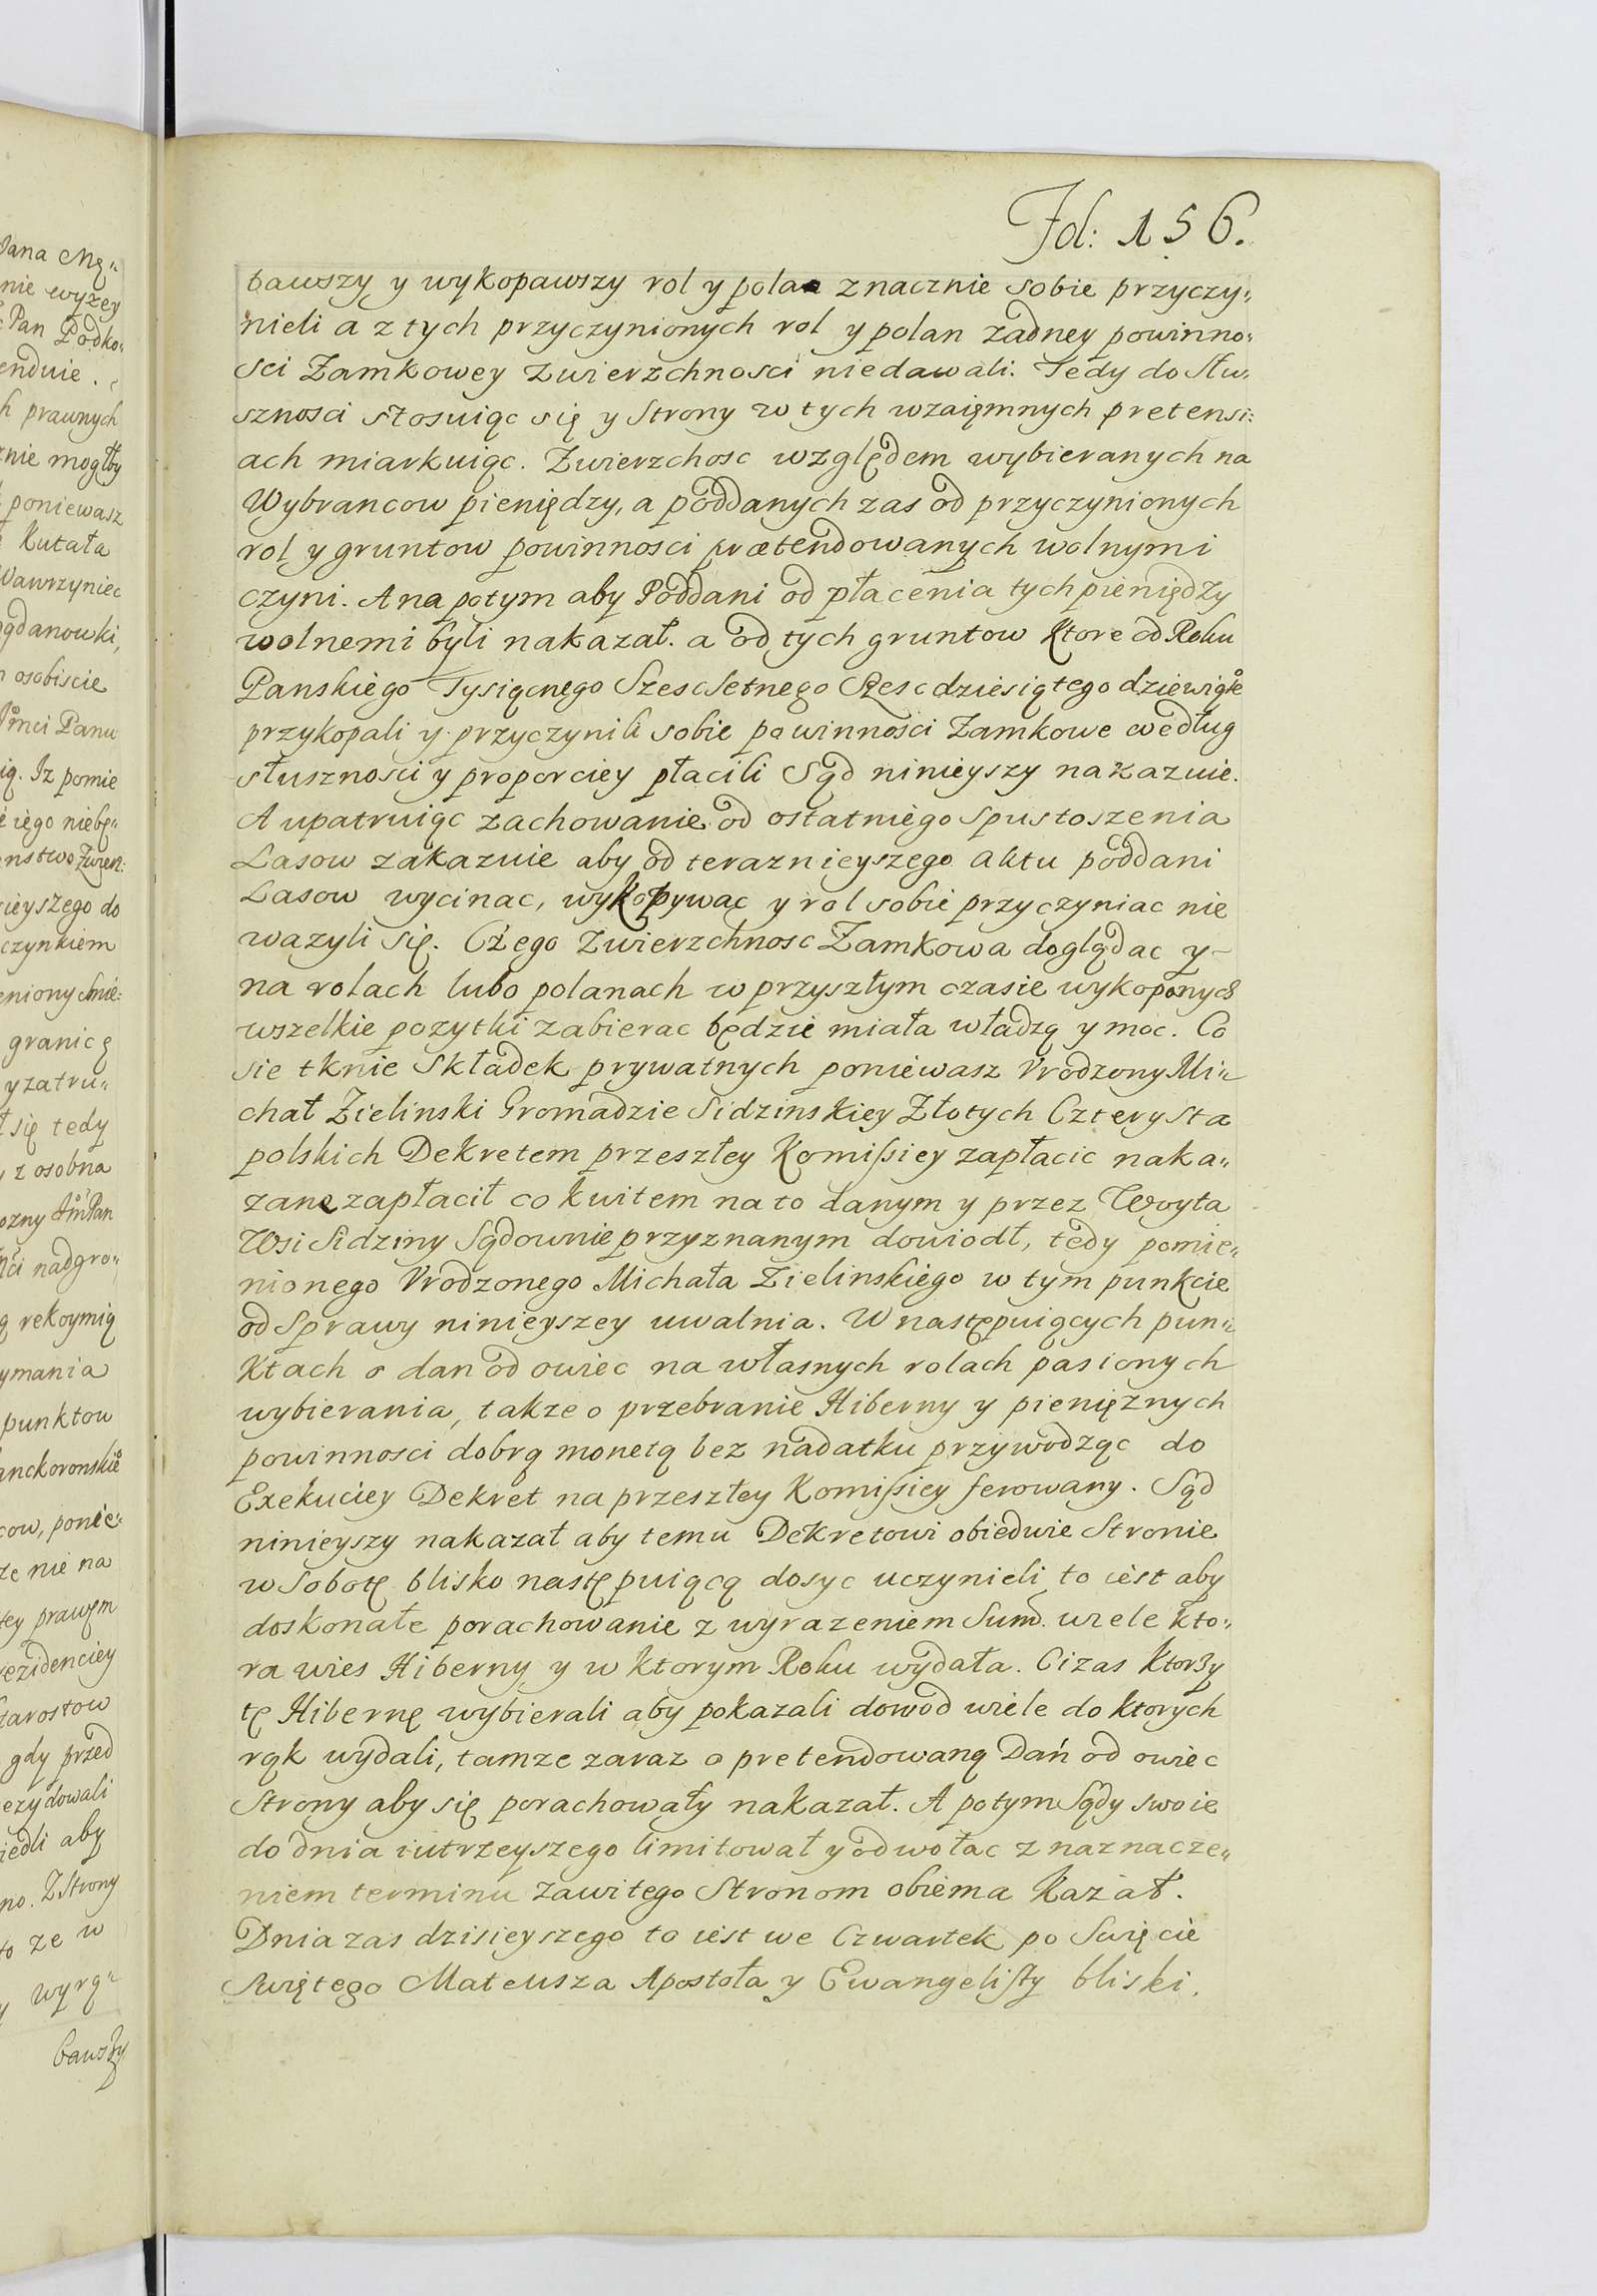 Fol: 156.
bawszy y wykopawszy rol y polan znacznie sobie przyczy„
nieli a z tych przyczynionych rol y polan zadney powinno„
sci Zamkowey Zwierzchnosci niedawali. Tedy do Słu„
sznosci stosuiąc się y Strony w tych wzaięmnych pretensi:
ach miarkuiąc. Zwierzchosc względem wybieranych na
Wybrancow pieniędzy, a poddanych zas od przyczynionych
rol y gruntow powinnosci prætendowanych wolnymi
czyni. A na potym aby Poddani od płacenia tych pieniędzy
wolnemi byli nakazał. a od tych gruntow Ktore od Roku
Panskiego Tysiącnego Szescsetnego Szescdziesiątego dziewiąte
przykopali y przyczynili sobie powinnosci Zamkowe według
słusznosci y proporciey płacili Sąd ninieyszy nakazuie.
A upatruiąc zachowanie od ostatniego spustoszenia
Lasow zakazuie aby od teraznieyszego aktu poddani
Lasow wycinac, wykopywac y rol sobie przyczyniac nie
wazyli się. Czego Zwierzchnosc Zamkowa doglądac y
na rolach lubo polanach w przyszłym czasie wykopanych
wszelkie pozytki zabierac będzie miała władzą y moc. Co
sie tknie Składek prywatnych poniewasz Vrodzony Mi„
chał Zielinski Gromadzie Sidzinskiey Złotych Czterysta
polskich Dekretem przeszłey Komissiey zapłacic naka„
zane zapłacił co kwitem na to danym y przez Woyta
Wsi Sidziny Sądownie przyznanym dowiodł, tedy pomie„
nionego Vrodzonego Michała Zielinskiego w tym punkcie
od Sprawy ninieyszey uwalnia. W następuiących pun„
Ktach o dan od owiec na własnych rolach pasionych
wybierania, takze o przebranie Hiberny y pieniężnych
powinnosci dobrą monetą bez nadatku przywodząc do
Exekuciey Dekret na przeszłey Komissiey ferowany. Sąd
ninieyszy nakazał aby temu Dekretowi obiedwie Stronie
w Sobotę blisko następuiącą dosyc uczynieli to iest aby
doskonałe porachowanie z wyrazeniem Sum̃. wiele kto„
ra wies Hiberny y w ktorym Roku wydała. Ci zas Ktorzy
tę Hibernę wybierali aby pokazali dowod wiele do ktorych
rąk wydali, tamze zaraz o pretendowaną Dań od owiec
Strony aby się porachowały nakazał. A potym Sądy swoie
do dnia iutrzeyszego limitował y odwołac z naznacze„
niem terminu zawitego Stronom obiema Kazał.
Dnia zas dzisieyszego to iest we Czwartek po Swięcie
Swiętego Mateusza Apostoła y Ewangelisty bliski.